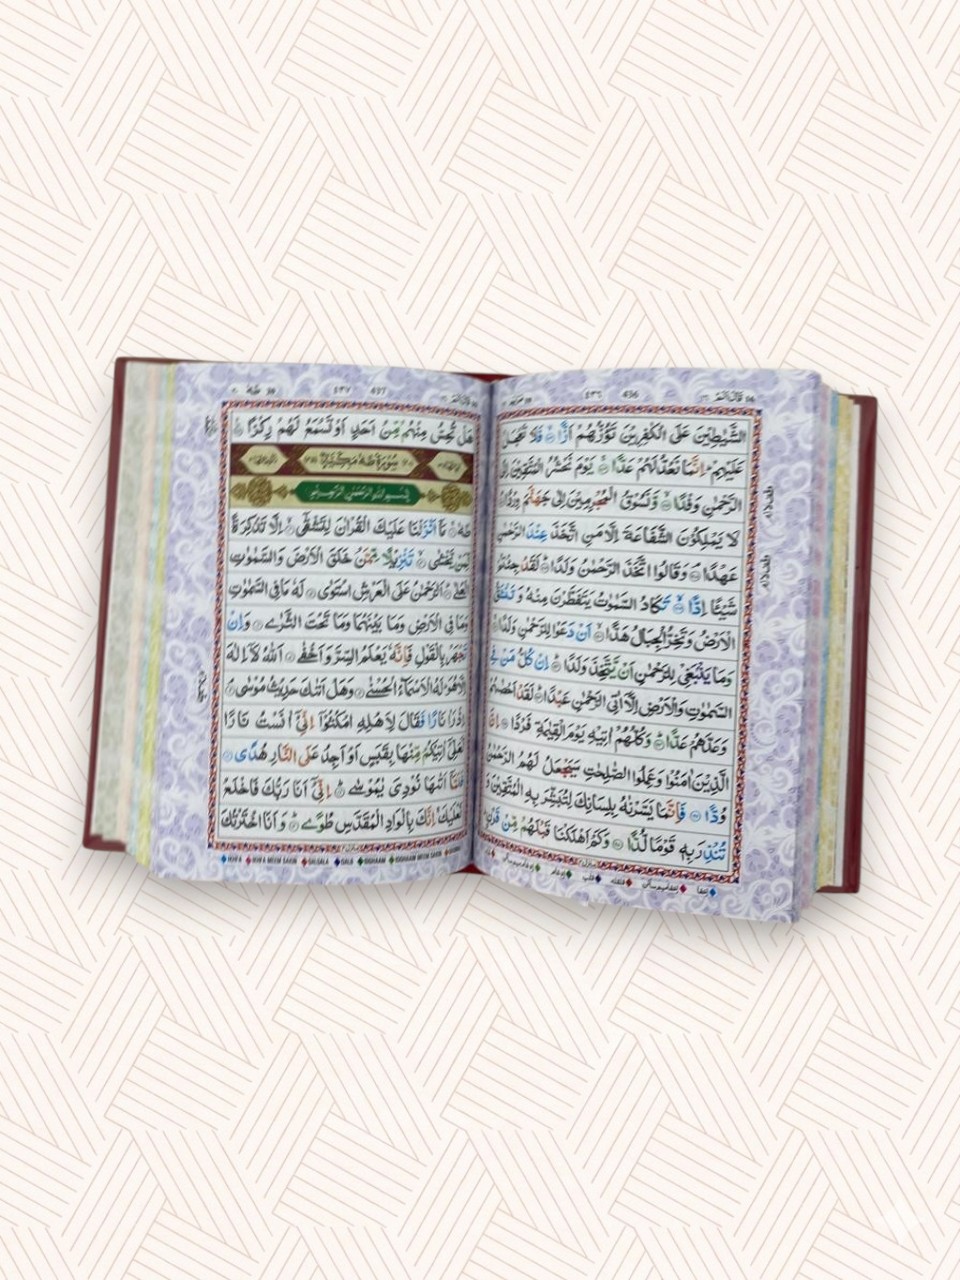 436
الشَّيٰطِيْنَ عَلَى الْكٰفِرِيْنَ تَؤُزُّهُمْ اَزًّا فَلَا تَعْجَلْ
عَلَيْهِمْ اِنَّمَا نَعُدُّ لَهُمْ عَدًّا يَوْمَ نَحْشُرُ الْمُتَّقِيْنَ اِلَى
الرَّحْمٰنِ وَفْدًا وَّنَسُوْقُ الْمُجْرِمِيْنَ اِلٰى جَهَنَّمَ وِرْدًا
لَا يَمْلِكُوْنَ الشَّفَاعَةَ اِلَّا مَنِ اتَّخَذَ عِنْدَ الرَّحْمٰنِ
عَهْدًا وَقَالُوا اتَّخَذَ الرَّحْمٰنُ وَلَدًا لَقَدْ جِئْتُمْ
شَيْئًا اِدًّا تَكَادُ السَّمٰوٰتُ يَتَفَطَّرْنَ مِنْهُ وَتَنْشَقُّ
الْاَرْضُ وَتَخِرُّ الْجِبَالُ هَدًّا اَنْ دَعَوْا لِلرَّحْمٰنِ وَلَدًا
وَمَا يَنْبَغِيْ لِلرَّحْمٰنِ اَنْ يَّتَّخِذَ وَلَدًا اِنْ كُلُّ مَنْ فِي
السَّمٰوٰتِ وَالْاَرْضِ اِلَّا اٰتِي الرَّحْمٰنِ عَبْدًا لَقَدْ اَحْصٰىهُمْ
وَعَدَّهُمْ عَدًّا وَكُلُّهُمْ اٰتِيْهِ يَوْمَ الْقِيٰمَةِ فَرْدًا اِنَّ
الَّذِيْنَ اٰمَنُوْا وَعَمِلُوا الصّٰلِحٰتِ سَيَجْعَلُ لَهُمُ الرَّحْمٰنُ
وُدًّا فَاِنَّمَا يَسَّرْنٰهُ بِلِسَانِكَ لِتُبَشِّرَ بِهِ الْمُتَّقِيْنَ وَ
تُنْذِرَ بِهٖ قَوْمًا لُّدًّا وَكَمْ اَهْلَكْنَا قَبْلَهُمْ مِّنْ قَرْنٍ
437
هَلْ تُحِسُّ مِنْهُمْ مِّنْ اَحَدٍ اَوْ تَسْمَعُ لَهُمْ رِكْزًا
سُوْرَةُ طٰهٰ مَكِّيَّةٌ
بِسْمِ اللّٰهِ الرَّحْمٰنِ الرَّحِيْمِ
طٰهٰ مَا اَنْزَلْنَا عَلَيْكَ الْقُرْاٰنَ لِتَشْقٰى اِلَّا تَذْكِرَةً
لِّمَنْ يَّخْشٰى تَنْزِيْلًا مِّمَّنْ خَلَقَ الْاَرْضَ وَالسَّمٰوٰتِ
الْعُلٰى اَلرَّحْمٰنُ عَلَى الْعَرْشِ اسْتَوٰى لَهٗ مَا فِي السَّمٰوٰتِ
وَمَا فِي الْاَرْضِ وَمَا بَيْنَهُمَا وَمَا تَحْتَ الثَّرٰى وَاِنْ
تَجْهَرْ بِالْقَوْلِ فَاِنَّهٗ يَعْلَمُ السِّرَّ وَاَخْفٰى اَللّٰهُ لَا اِلٰهَ
اِلَّا هُوَ لَهُ الْاَسْمَآءُ الْحُسْنٰى وَهَلْ اَتٰىكَ حَدِيْثُ مُوْسٰى
اِذْ رَاٰ نَارًا فَقَالَ لِاَهْلِهِ امْكُثُوْٓا اِنِّيْٓ اٰنَسْتُ نَارًا
لَّعَلِّيْٓ اٰتِيْكُمْ مِّنْهَا بِقَبَسٍ اَوْ اَجِدُ عَلَى النَّارِ هُدًى
فَلَمَّآ اَتٰىهَا نُوْدِيَ يٰمُوْسٰى اِنِّيْٓ اَنَا رَبُّكَ فَاخْلَعْ
نَعْلَيْكَ اِنَّكَ بِالْوَادِ الْمُقَدَّسِ طُوًى وَاَنَا اخْتَرْتُكَ
IKHFA IKHFA MEEM SAKIN QALQALA QALB IDGHAAM IDGHAAM MEEM SAKIN